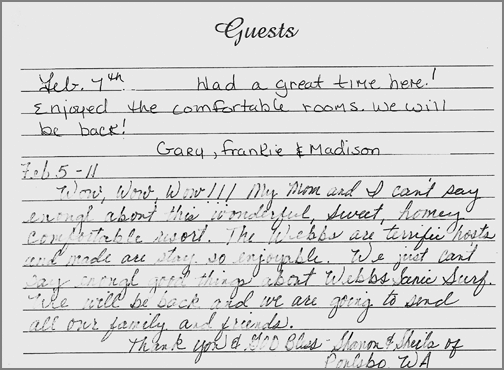 Guests
Feb. 7th Had a great time here!
Enjoyed the comfortable rooms. We will
be back!
Gary, Frankie & Madison
Feb. 5-11
Wow, Wow, Wow!!! My Mom and I can't say
enough about this wonderful, sweet, homey
comfortable resort. The Webbs are terrific hosts
and made are stay so enjoyable. We just can't
say enough good things about Webbs Surf.
We will be back and we are going to send
all our family and friends.
Thank you & GOD Bless - Sharon & Sheila of
Poulsbo, WA